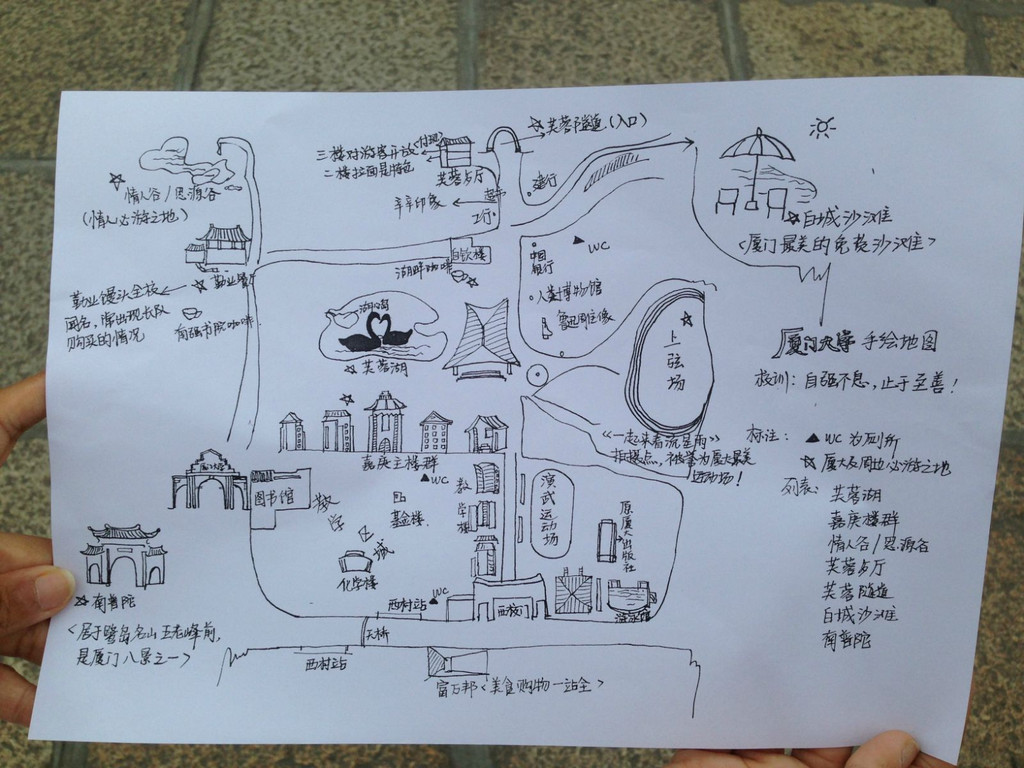 芙蓉隧道（入口）
三楼对游客开放（付现）
二楼拉面是特色
芙蓉歺厅
建行
辛辛印象
超市
工行
情人谷/思源谷
（情人必游之地）
白城沙滩
<厦门最美的免费沙滩>
勤业餐
勤业馒头全校
闻名，常出现长队
购买的情况
南强书院咖啡
湖畔咖啡
中国
银行
WC
人类博物馆
鲁迅雕像
湖心岛
芙蓉湖
上弦场
厦门大学 手绘地图
校训：自强不息，止于至善！
《一起来看流星雨》
拍摄点，被誉为厦大最美
运动场！
标注：▲WC 为厕所
☆厦大及周边必游之地
列表：芙蓉湖
嘉庚楼群
情人谷/思源谷
芙蓉歺厅
芙蓉隧道
白城沙滩
南普陀
嘉庚主楼群
WC
图书馆
教学城
基金楼
化学楼
教学楼
演武运动场
原厦大出版社
南普陀
<居于鹭岛名山五老峰前，
是厦门八景之一>
西村站
WC
西校门
游泳馆
天桥
西村站
富万邦<美食购物一站全>